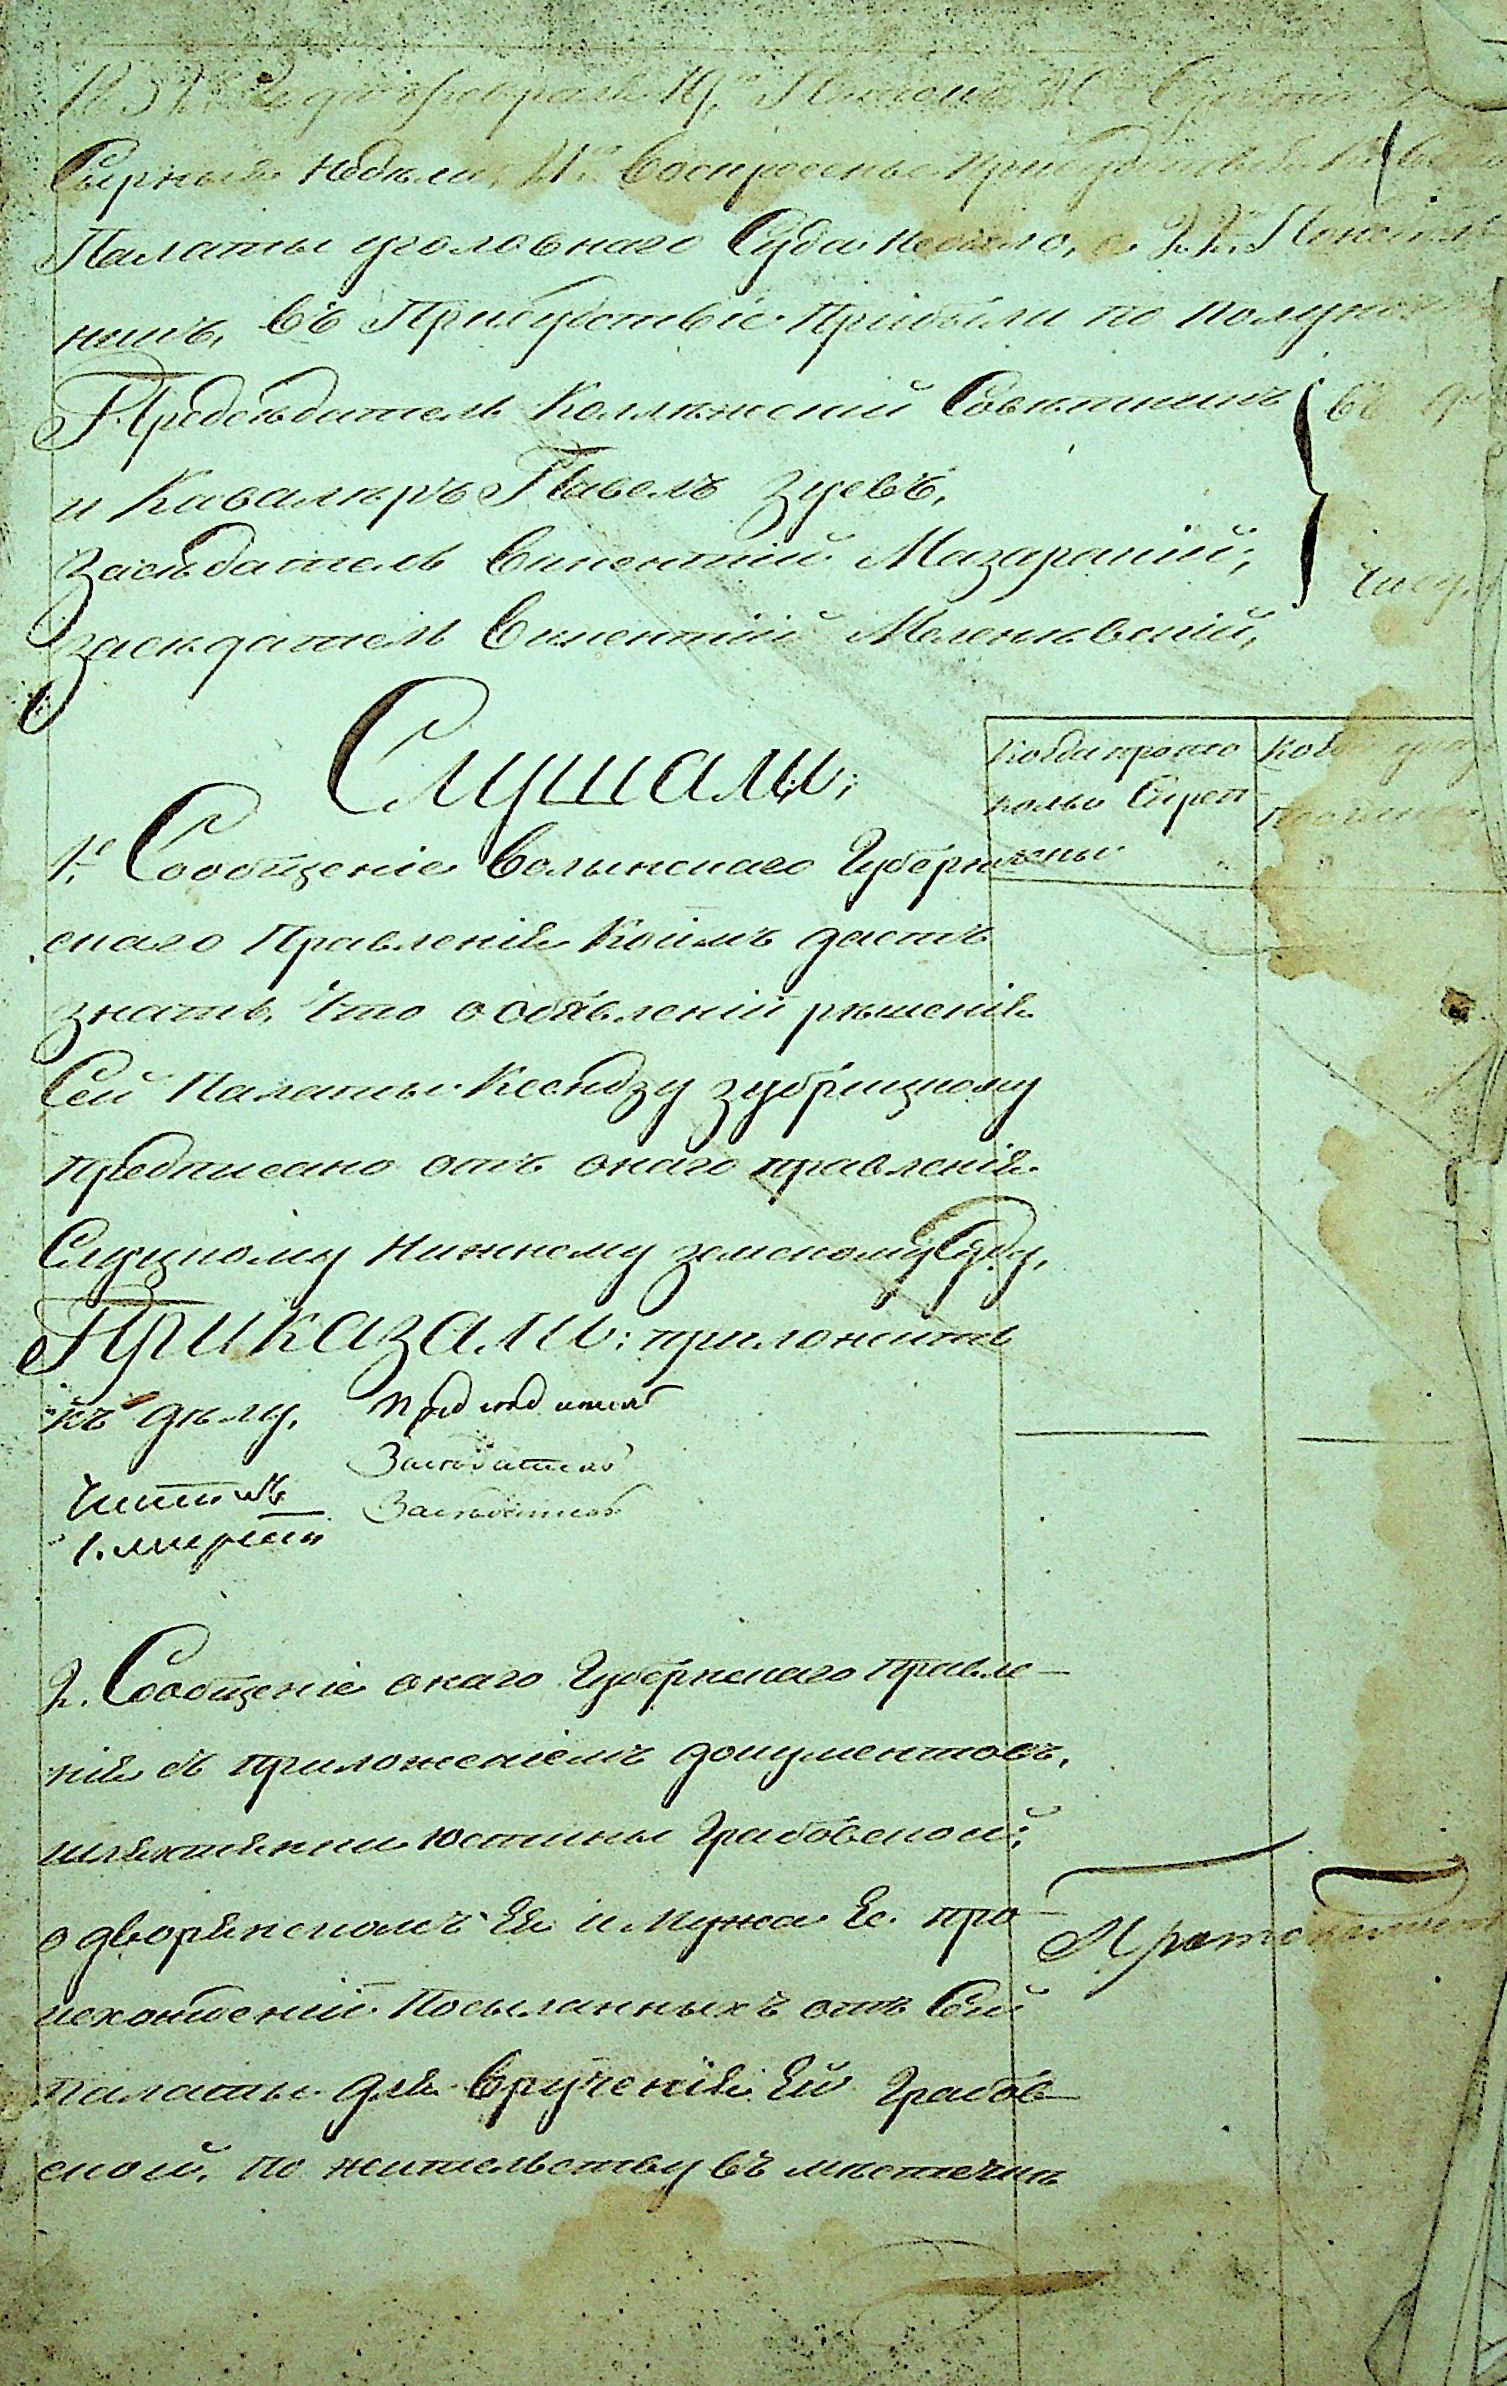 Года Февраля 19. Пятокъ 20 Субота
Сырныя недели, 21. Воскресенье присудствия
Палаты уголовнаго Суда небыло, а 22. Понедель
никъ, въ Присудствіе прибыли по полуно
Председатель Коллежскій Советникъ
и Кавалеръ Павелъ Зуевъ,
въ
Заседатель Викентій Мазаракій,
заседатель Викентій
Слушали:
Когда прото
колы Скреп
лены
1е Сообщеніе Волынскаго Губерн
скаго Правленія коимъ даетъ
знать, что о объявленіи решенія
Сей Палаты Ксендзу Зубрицкому
предписано отъ онаго правленія
Слуцкому Нижнему земскому Суду,
Приказали: приложить
къ делу,
Председатель
Заседатель
Заседатель
2. Сообщеніе онаго Губернскаго Правле-
нія съ приложеніемъ документовъ,
шляхтянки Юстины Грабовской,
о дворянскомъ Ея и мужа Ее про-
исхожденіи посыланныхъ отъ Сей
палаты для врученія Ей Грабов-
ской, по жительству въ местечке